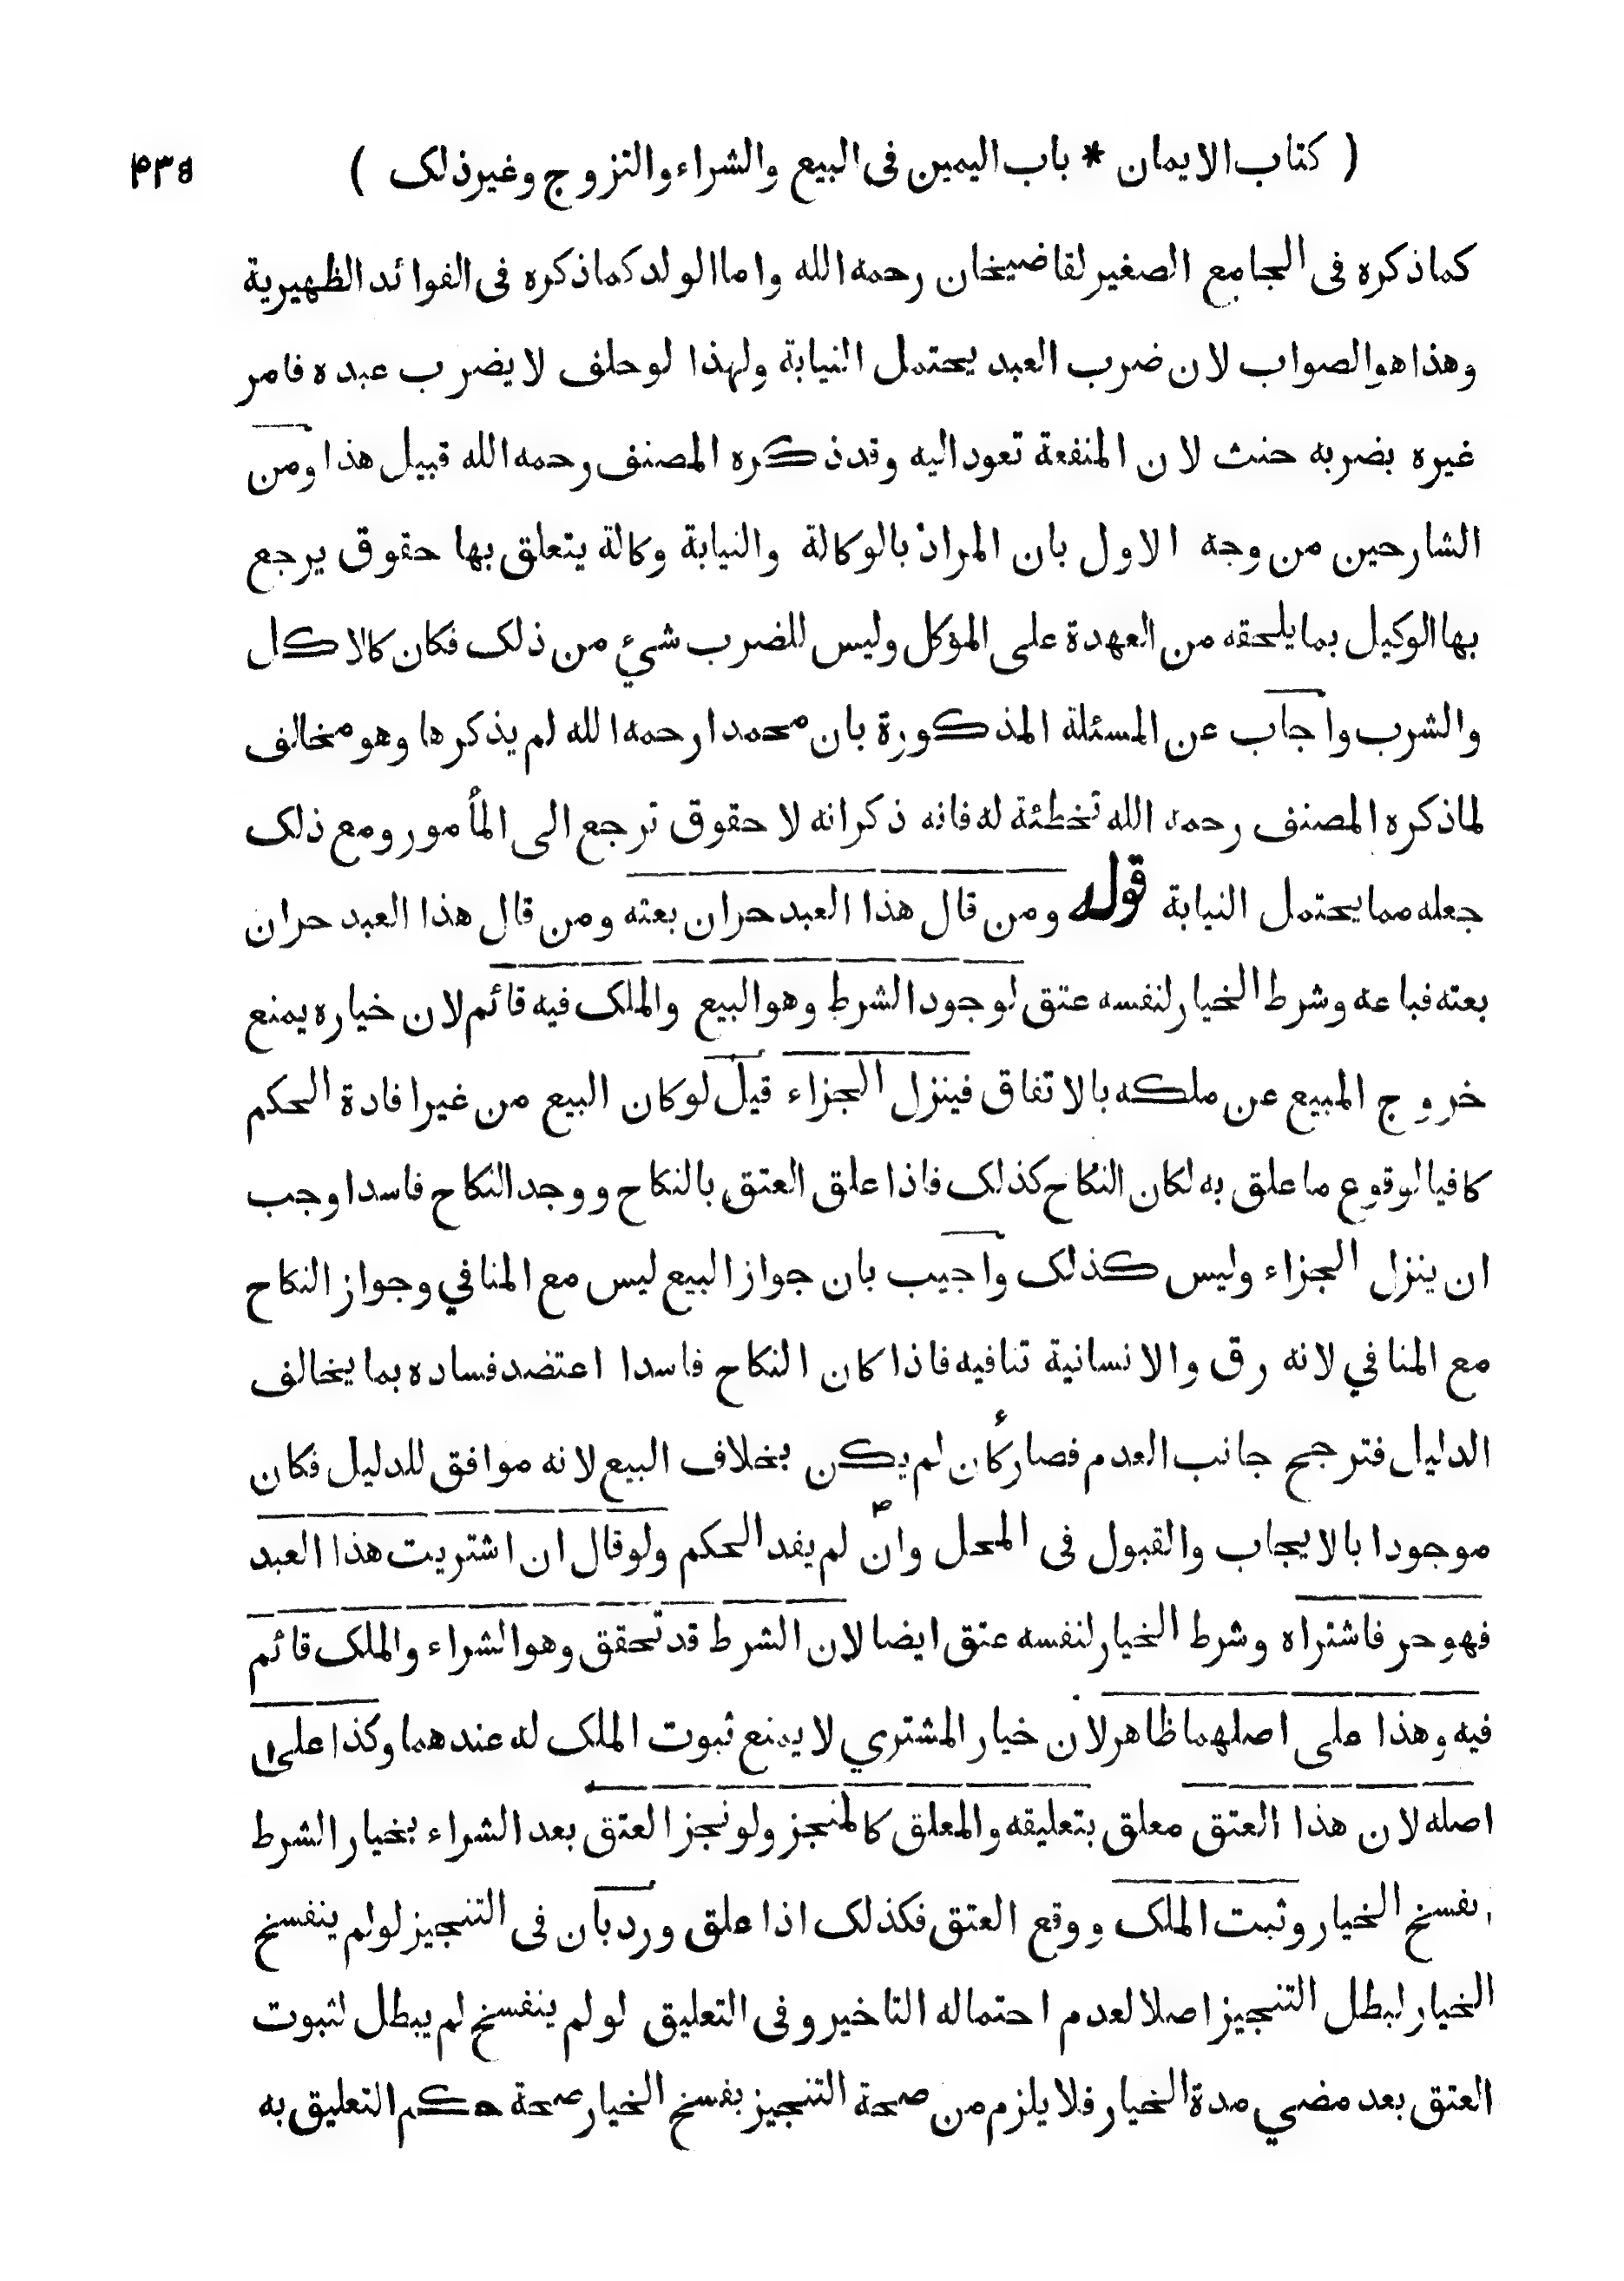 ( كتاب الايمان * باب اليمين فى البيع والشراء والتزوج وغيرذلك ) ۴۳۵
كماذكره فى الجامع الصغير لقاضيخان رحمه الله واما الولد كماذكره فى الفوائد الظهيرية
وهذا هو الصواب لان ضرب العبد يحتمل النيابة ولهذا لوحلف لا يضرب عبده فامر
غيره بضربه حنث لان المنفعة تعود اليه وقد ذكره المصنف رحمه الله قبيل هذا ومن
الشارحين من وجه الاول بان المراد بالوكالة والنيابة وكالة يتعلق بها حقوق يرجع
بها الوكيل بما يلحقه من العهدة على المؤكل وليس للضرب شئ من ذلك فكان كالاكل
والشرب واجاب عن المسئلة المذكورة بان محمدا رحمه الله لم يذكرها وهو مخالف
لما ذكره المصنف رحمه الله تخطئة له فانه ذكر انه لا حقوق ترجع الى المأمور ومع ذلك
جعله مما يحتمل النيابة قوله ومن قال هذا العبد حر ان بعته ومن قال هذا العبد حر ان
بعته فباعه وشرط الخيار لنفسه عتق لوجود الشرط وهو البيع والملك فيه قائم لان خياره يمنع
خروج المبيع عن ملكه بالاتفاق فينزل الجزاء قيل لو كان البيع من غير افادة الحكم
كافيا لوقوع ما علق به لكان النكاح كذلك فاذا علق العتق بالنكاح ووجد النكاح فاسدا وجب
ان ينزل الجزاء وليس كذلك واجيب بان جواز البيع ليس مع المنافي وجواز النكاح
مع المنافي لانه رق والانسانية تنافيه فاذا كان النكاح فاسدا اعتضد فساده بما يخالف
الدليل فترجح جانب العدم فصار كأن لم يكن بخلاف البيع لانه موافق للدليل فكان
موجودا بالايجاب والقبول فى المحل وان لم يفد الحكم ولوقال ان اشتريت هذا العبد
فهو حر فاشتراه وشرط الخيار لنفسه عتق ايضا لان الشرط قد تحقق وهو الشراء والملك قائم
فيه وهذا على اصلهما ظاهر لان خيار المشتري لا يمنع ثبوت الملك له عندهما وكذا على
اصله لان هذا العتق معلق بتعليقه والمعلق كالمنجز ولو نجز العتق بعد الشراء بخيار الشرط
انفسخ الخيار وثبت الملك ووقع العتق فكذلك اذا علق ورد بان فى التنجيز لو لم ينفسخ
الخيار لبطل التنجيز اصلا لعدم احتماله التاخير وفى التعليق لو لم ينفسخ لم يبطل لثبوت
العتق بعد مضي مدة الخيار فلا يلزم من صحة التنجيز بفسخ الخيار صحة حكم التعليق به